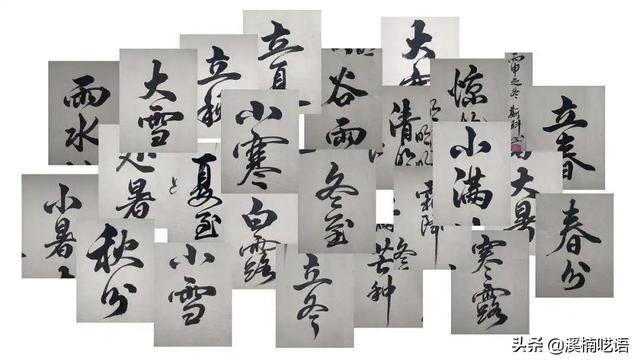 雨水
大雪
立秋
立夏
谷雨
大
清明
惊
丙申之冬
立春
小暑
处暑
夏至
小寒
冬至
霜降
小满
大暑
春分
秋分
小雪
白露
立冬
芒种
寒露
头条 @溪楠呓语